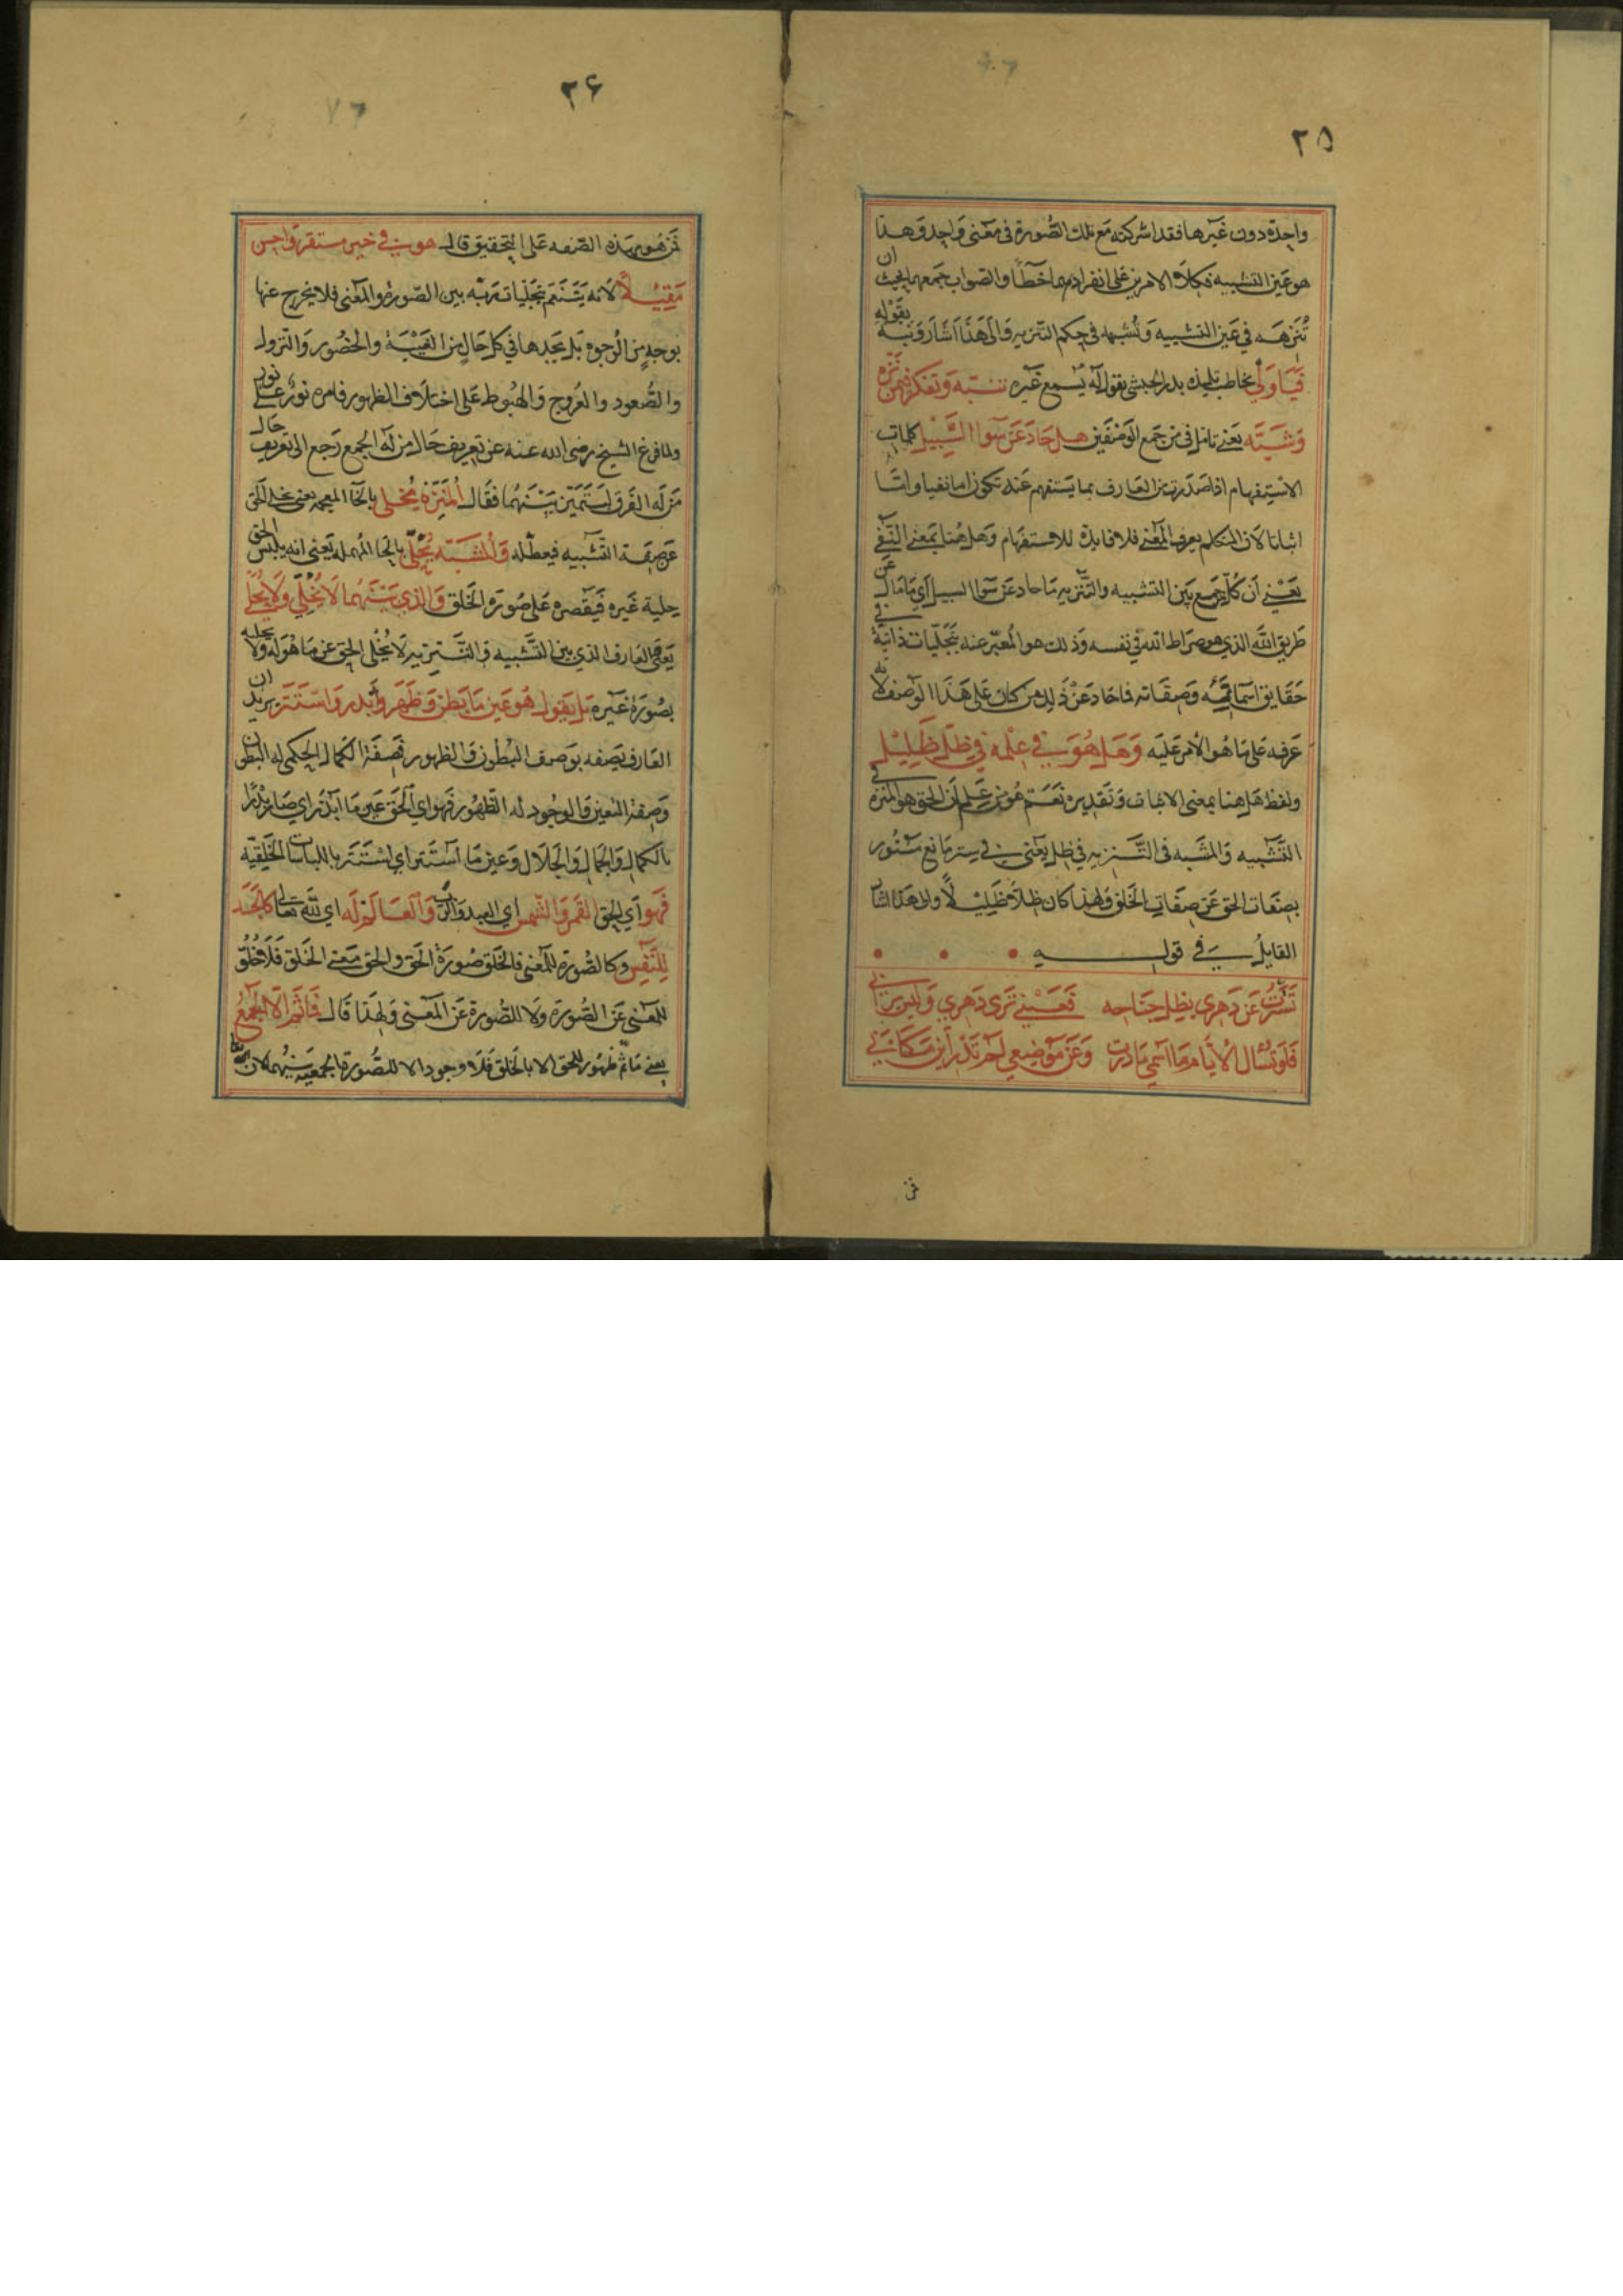 ٢٥
واحدة دون غيرها فقد اشركته مع تلك الصورة في معنى واحد وهذا
هو عين التشبيه فكلا الامرين على انفرادهما خطأ والصواب جمعهما بحيث ان
تنزهه في عين التشبيه وتشبهه في حكم التنزيه والى هذا اشار ونبه بقوله
فيا ولي يخاطب تلميذه بدر الحبشي بقوله يسمع غيره تنبه وتفكر فمن نزه
وشبه يعني تامل في من جمع الوصفين هل حاد عن سوا السبيل كلمات
الاستفهام اذا صدرت من العارف بما يستفهم عنه تكون اما نفيا واما
اثباتا لان المتكلم يعرف المعنى فلا فايدة للاستفهام وهل هنا بمعنى النفي
يعني ان كل من جمع بين التشبيه والتنزيه ما حاد عن سوا السبيل اي ما مال عن
طريق الله الذي هو صراط الله في نفسه وذلك هو المعبر عنه بتجليات ذاتية في
حقايق اسمائه وصفاته فما حاد عن ذلك من كان على هذا الوصف لانه
عرفه على ما هو الامر عليه وهل هو في علمه في ظل ظليل
ولفظ هل هنا بمعنى الاثبات وتقديره نعم هو من علم ان الحق هو المنزه في
التشبيه والمشبه في التنزيه في ظل يعني في ستر مانع مستور
بصفات الحق عن صفات الخلق ولهذا كان ظلا ظليلا والى هذا اشار
القايل في قوله
تسترت عن دهري بظل جناحه فعيني ترى دهري وليس يراني
فلو تسال الايام ما اسمي ما درت وعن موضعي لم تدر اين مكاني
فمن
٢۶
فمن هو بهذه الصفه على التحقيق قال هو في خير مستقر واحسن
مقيلا لانه يتنعم بتجليات ربه بين الصورة والمعنى فلا يخرج عنها
بوجه من الوجوه بل يجدها في كل حال من الغيبة والحضور والنزول
والصعود والعروج والهبوط على اختلاف الظهور فامره نور على نور
ولما فرغ الشيخ رضى الله عنه عن تعريف حال من له الجمع رجع الى تعريف حال
من له الفرق ليتميز بينهما فقال المنزه يخلى بالخا المعجمه يعني يخلى الحق
عن صفة التشبيه فيعطله والمشبه يحلى بالحا المهملة يعني انه يلبس الحق
حلية غيره فيقصره على صورة الخلق والذي بينهما لا يخلي ولا يحلي
يعني العارف الذي بين التشبيه والتنزيه لا يخلى الحق عن ما هو له ولا يحليه
بصورة غيره بل يقول هو عين ما بطن وظهر وابدر واستتر يريد ان
العارف يصفه بوصف البطون والظهور فصفة الكمال الحكمي له البطون
وصفة التعين والوجود له الظهور فهو اي الحق عين ما ابدر اي صار بدرا
بالكمال والجمال والجلال وعين ما استتر اي استتر باللباسات الخلقيه
فهو اي الحق القمر والشمس اي العبد والرب والعالم له اي لله تعالى كالجسد
للنفس وكالصورة للمعنى فالخلق صورة الحق والحق معنى الخلق فلا خلو
للمعنى عن الصورة ولا للصورة عن المعنى ولهذا قال فما ثم الا الجمع
يعني ما ثم ظهور للحق الا بالخلق فلا وجود الا للصورة الجمعية بينهما لان